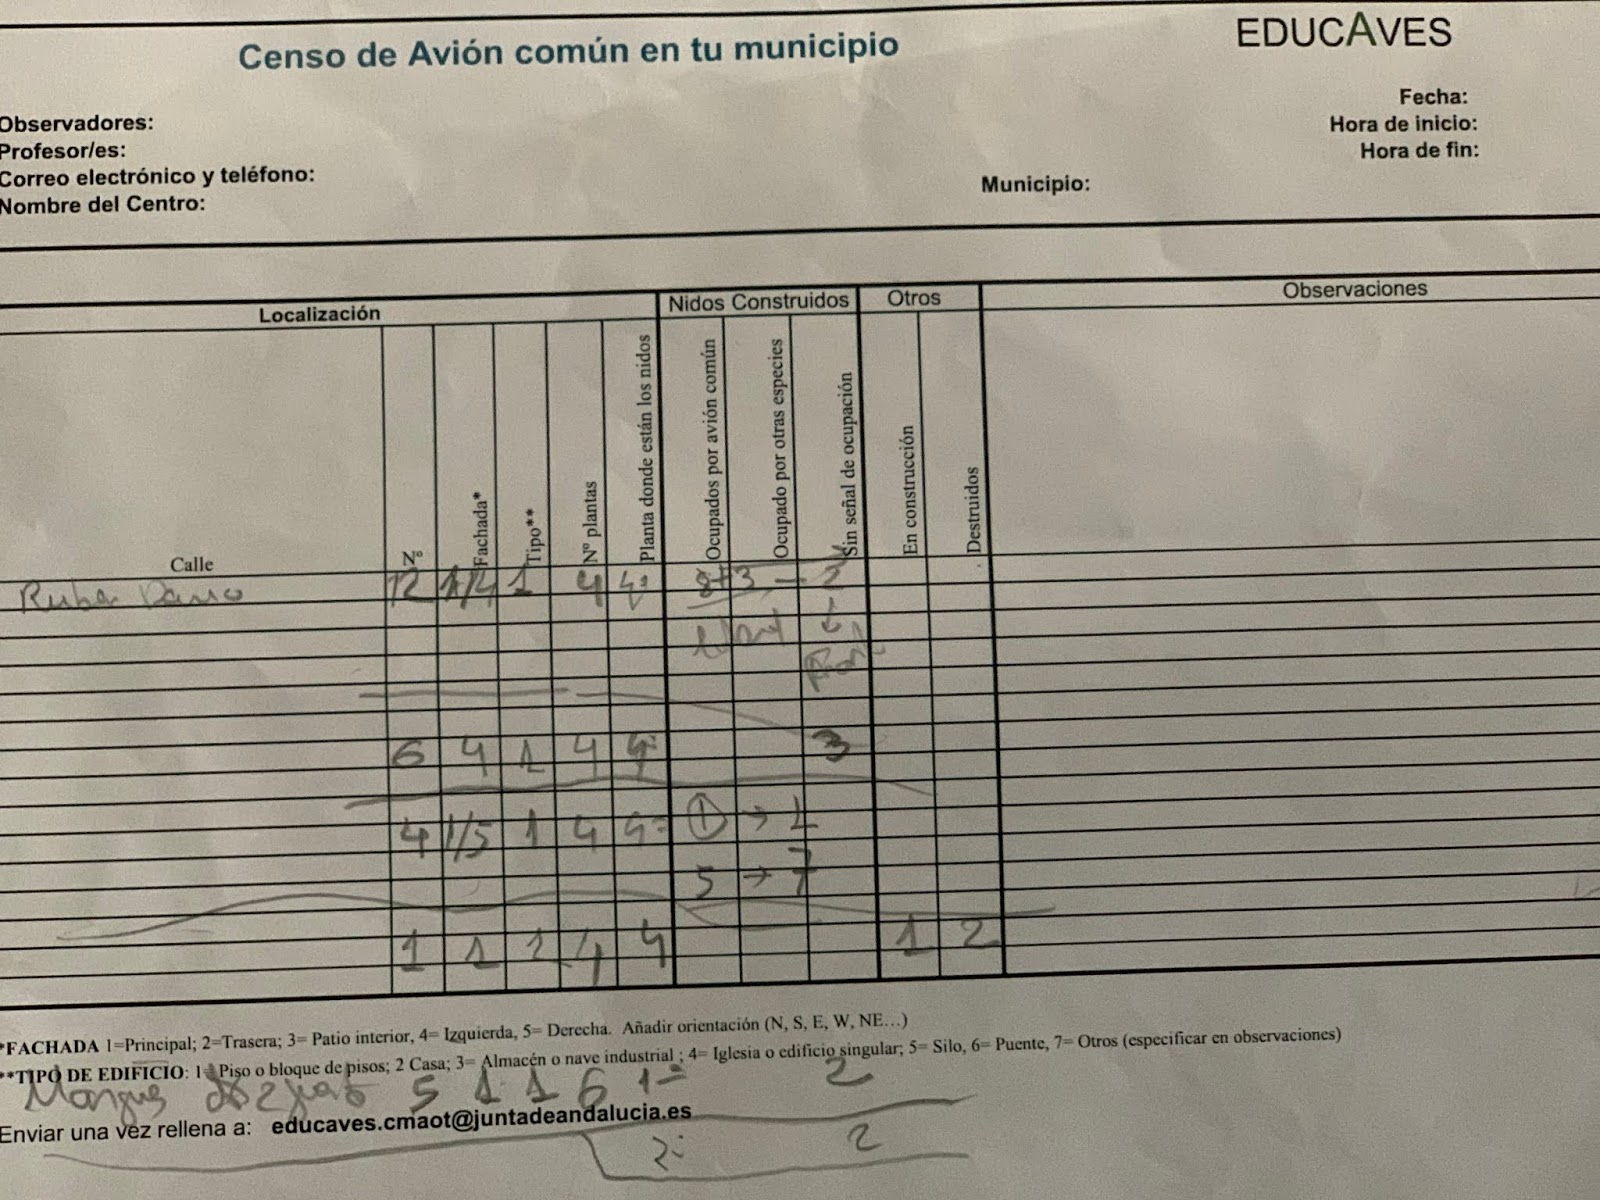 Censo de Avión común en tu municipio
EDUCAVES
Fecha:
Hora de inicio:
Hora de fin:
Observadores:
Profesor/es:
Correo electrónico y teléfono:
Nombre del Centro:
Municipio:
Localización
Nidos Construidos
Otros
Observaciones
Calle
Nº
Fachada*
Tipo**
Nº plantas
Planta donde están los nidos
Ocupados por avión común
Ocupado por otras especies
Sin señal de ocupación
En construcción
Destruidos
12 1/4 1 4 4º 8+3 - 2
6 4 1 4 4º 3
4 1/5 1 4 4º 1 → 1
5 → 7
1 1 1 4 4 1 2
*FACHADA 1=Principal; 2=Trasera; 3= Patio interior, 4= Izquierda, 5= Derecha. Añadir orientación (N, S, E, W, NE…)
**TIPO DE EDIFICIO: 1= Piso o bloque de pisos; 2 Casa; 3= Almacén o nave industrial ; 4= Iglesia o edificio singular; 5= Silo, 6= Puente, 7= Otros (especificar en observaciones)
5 1 1 6 1º 2
Enviar una vez rellena a: educaves.cmaot@juntadeandalucia.es
2º 2